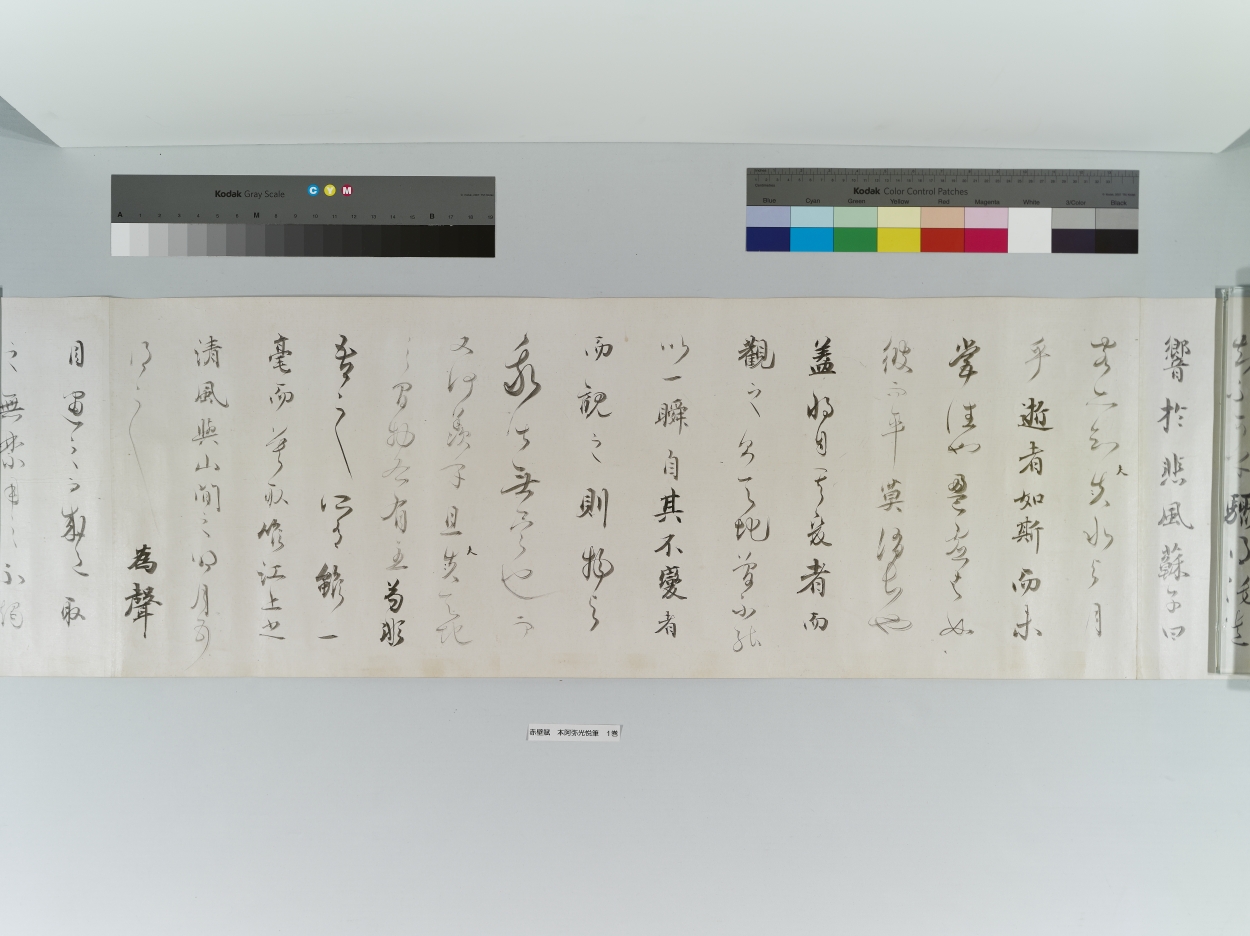 Kodak Gray Scale
C Y M
A 1 2 3 4 5 6 M 8 9 10 11 12 13 14 15 B 17 18 19
Kodak Color Control Patches
Blue Cyan Green Yellow Red Magenta White 3/Color Black
響於悲風蘇子曰
客亦知夫水与月
乎逝者如斯而未
嘗往也盈虚者如
彼而卒莫消長也
盖将自其変者而
觀之則天地曾不能
以一瞬自其不變者
而観之則物与
我皆無尽也而
又何羨乎且夫天地
之間物各有主苟非
吾之所有雖一
毫而莫取惟江上之
清風與山間之明月耳
得之而為聲
目遇之而成色取
之無禁用之不竭
赤壁賦 本阿弥光悦筆 1巻